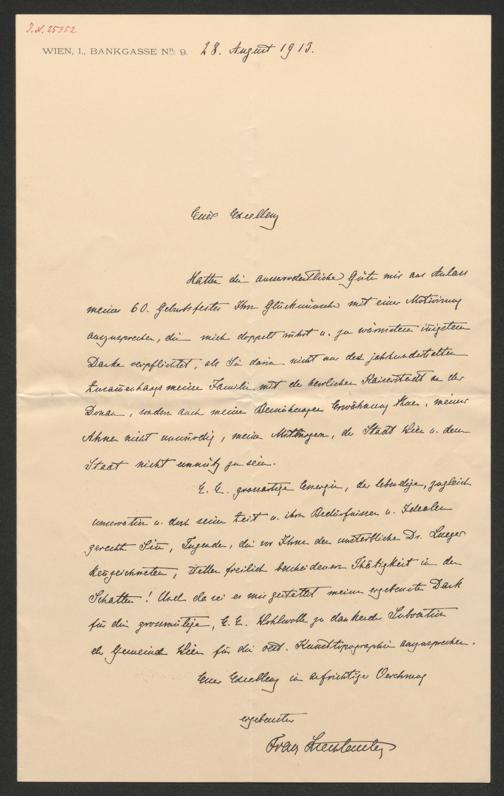 J.N. 25352
WIEN, I., BANKGASSE Nr. 9. 28. August 1913.
Euer Excellenz
Hatten die ausserordentliche Güte mir aus Anlass
meines 60. Geburtsfestes Ihre Glückwünsche mit einer Motivirung
auszusprechen, die mich doppelt rührt u. zu wärmstem innigstem
Danke verpflichtet, als Sie darin nicht nur des jahrhundertalten
Zusammenhangs meiner Familie mit der herrlichen Kaiserstadt an der
Donau, sondern auch meiner Bemühungen Erwähnung thun, meiner
Ahnen nicht unwürdig, meinen Mitbürgern, der Stadt Wien u. dem
Staat nicht unnütz zu sein.
E. E. grossartige Energie, der lebendige, zugleich
conservative u. doch seiner Zeit u. ihren Bedürfnissen u. Idealen
gerecht Sinn, Tugenden, die vor Ihnen den unsterblichen Dr. Lueger
auszeichneten, stellen freilich bescheidenere Thätigkeit in den
Schatten! Und da sei es mir gestattet meinen ergebensten Dank
für die grossmütige, E. E. Wohlwolle zu dankende Subvention
der Gemeinde Wien für die öst. Kunsttopographie auszusprechen.
Euer Excellenz in aufrichtiger Verehrung
ergebenster